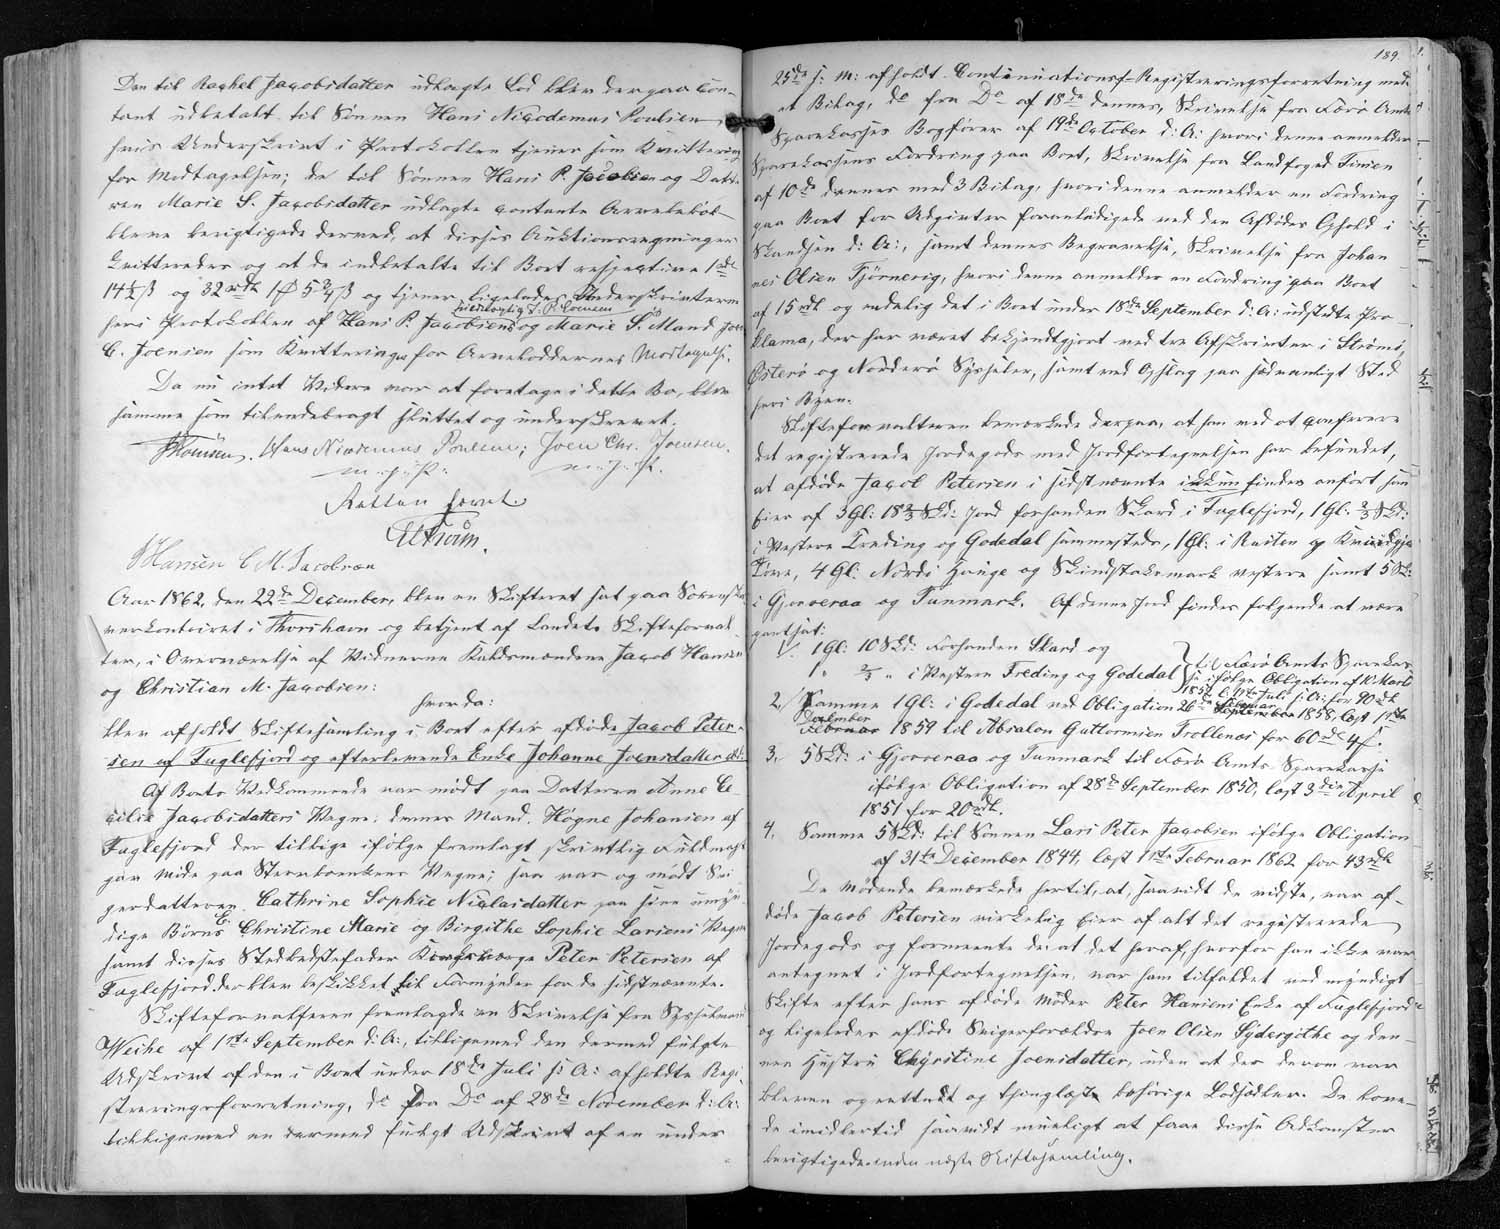 Den til Rachel Jacobsdatter udlagte Lod blev derpaa con-
tant udbetalt til Sønnen Hans Nicodemus Poulsen,
hvis Underskrivt i Protokollen tjener som Kvittering
for Modtagelsen; de til Sønnen Hans P. Jacobsen og Datte-
ren Marie S. Jacobsdatter udlagte contante Arvebeløb
bleve berigtigede derved, at disses Auktionsregninger
kvitteredes og at de indbetalte til Boet respective 1 rdl
14½ ß og 32 rdl 1 ₰ 5¾ ß og tjener ligeledes Underskrivterne
heri Protokollen af Hans P. Jacobsens og Marie S. Mand Joen
C. Joensen som Kvittering for Arveloddernes Modtagelse.
Da nu intet Videre var at foretage i dette Bo, blev
samme som tilendebragt sluttet og underskrevet.
Hans Nicodemus Poulsen; Joen Chr. Joensen.
m. f. P. m. f. P.
Retten hævet
HTrøm.
JHansen C M. Jacobsen
Aar 1862, den 22de December, blev en Skifteret sat paa Sorenskri-
verkontoiret i Thorshavn og betjent af Landets Skifteforval-
ter, i Overværelse af Vidnerne Raadsmændene Jacob Hansen
og Christian M. Jacobsen:
hvorda:
blev afholdt Skiftesamling i Boet efter afdøde Jacob Peter-
sen af Fuglefjord og efterlevende Enke Johanne Joensdatter
Af Boets Vedkommende var mødt paa Datteren Anne Ce-
cilie Jacobsdatters Vegne: dennes Mand, Høgne Johansen af
Fuglefjord der tillige ifølge fremlagt skrivtlig Fuldmagt
gav Møde paa Stervboenkens Vegne; saa var og mødt Svi-
gerdatteren Cathrine Sophie Niclasdatter paa sine umyn-
dige Børns Christine Marie og Birgithe Sophie Larsens Vegne
samt disses Stedbedstefader Peter Petersen af
Fuglefjord der blev beskikket til Formynder for de sidstnævnte.
Skifteforvalteren fremlagde en Skrivelse fra Sysselmand
Weihe af 1ste September d: A:, tilligemed den dermed fulgte
Udskrivt af den i Boet under 18de Juli s: A: afholdte Regi-
streringsforretning, do fra Do af 28de November d: A:
tilligemed en dermed fulgt Udskrivt af en under
189.
25de s: M: afholdt Continuationsf-Registreringsforretning med
et Bilag, do fra Do af 18de dennes, Skrivelse fra Færø Amts
Sparekasses Bogfører af 19de October d: A: hvori denne anmelder
Sparekassens Fordring paa Boet, Skrivelse fra Landfoged
af 10de dennes med 3 Bilag, hvori denne anmelder en Fordring
paa Boet for Udgivter foranledigede ved den Afdødes Ophold i
Skandsen d: A:, samt dennes Begravelse, Skrivelse fra Johan-
nes Olsen Tjørnevig, hvori denne anmelder en Fordring paa Boet
af 15 rdl og endelig det i Boet under 18de September d: A: udstedte Pro-
klama, der har været bekjendtgjort ved tre Afskrivter i Strømø,
Østerø og Norderø Sysseler, samt ved Opslag paa sædvanligt Sted
heri Byen.
Skifteforvalteren bemærkede derpaa, at han ved at conferere
det registrerede Jordegods med Jordfortegnelsen har befundet,
at afdøde Jacob Petersen i sidstnævnte ikkun findes anført som
Eier af 3 Gl: 18⅔ Skd: Jord forhanden Skard i Fuglefjord, 1 Gl: ⅔ Skd:
i Vestere Treding og Godedal sammesteds, 1 Gl: i Rasten og
4 Gl: Nordi Hauge og Skindstaksmark vestere samt 5 Skd:
i Gjoveraa og Tunmark. Af denne Jord findes følgende at være
pantsat:
1. 1 Gl: 10 Skd: Forhanden Skard og
1 " ⅔ " i Vestere Treding og Godedal
til Færø Amts Sparekas-
se ifølge Obligation af 10 Marts
185 1ste Juli s: A: for 90 rdl
2. Samme 1 Gl: i Godedal ved Obligation 26de Februar 1858, læst 1ste
December 1859 til Absalon Guttormsen Trollenæs for 60 rdl 4 ß.
3. 5 Skd: i Gjoveraa og Tunmark til Færø Amts Sparekasse
ifølge Obligation af 28de September 1850, læst 3die April
1851 for 20 rdl.
4. Samme 5 Skd: til Sønnen Lars Peter Jacobsen ifølge Obligation
af 31te December 1844, læst 1ste Februar 1862 for 43 rdl
De Mødende bemærkede hertil, at, saavidt de vidste, var af-
døde Jacob Petersen virkelig Eier af alt det registrerede
Jordegods og formeente de: at det heraf, hvorfor han ikke var
antegnet i Jordfortegnelsen, var ham tilfaldet ved myndigt
Skifte efter hans afdøde Moder Peter Hansens Enke af Fuglefjord
og ligeledes afdøde Svigerforældre Joen Olsen Sydergøthe og den-
nes Hustru Christine Joensdatter, uden at der derom var
bleven oprettede og thinglæste behørige Lodsedler. De love-
de imidlertid saavidt mueligt at faae disse Adkomster
berigtigede inden næste Skiftesamling.